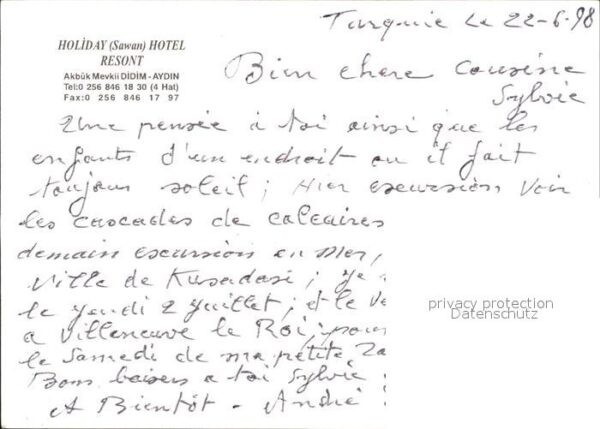 Turquie le 22-6-98
HOLIDAY (Sawan) HOTEL
RESONT
Akbük Mevkii DİDİM - AYDIN
Tel:0 256 846 18 30 (4 Hat)
Fax:0 256 846 17 97
Bien chere cousine
Sylvie
Une pensée à toi ainsi que les
enfants d'un endroit ou il fait
toujours soleil; Hier excursion voir
les cascades de calcaires
demain excursion en mer,
ville de Kusadasi;
le jeudi 2 juillet; et le
a Villeneuve le Roi,
le Samedi de ma petite
Bons baisers a toi Sylvie
A Bientôt - André
privacy protection
Datenschutz